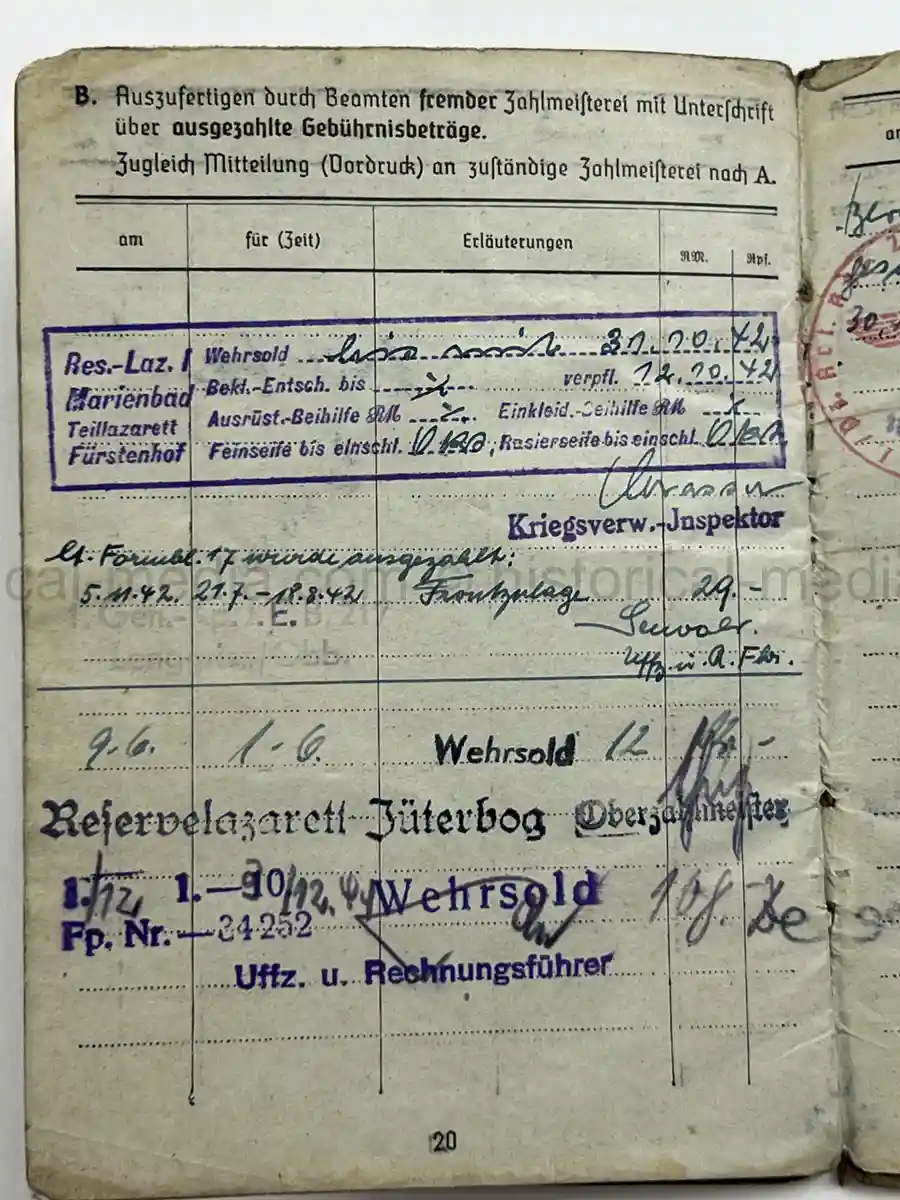 B. Auszufertigen durch Beamten fremder Zahlmeisterei mit Unterschrift
über ausgezahlte Gebührnisbeträge.
Zugleich Mitteilung (Vordruck) an zuständige Zahlmeisterei nach A.
am für (Zeit) Erläuterungen RM. Rpf.
Res.-Laz. I Wehrsold bis 31.10.42
Marienbad Bekl.-Entsch. bis verpfl. 12.10.42
Teillazarett Ausrüst.-Beihilfe RM Einkleid.-Beihilfe RM
Fürstenhof Feinseife bis einschl. Okt., Rasierseife bis einschl. Okt.
Kriegsverw.-Inspektor
Lt. Formbl. 17 wurde ausgezahlt:
5.11.42. 21.7. - 18.8.42 Frontzulage 29.-
E.
Uffz. u. R. Fhr.
9.6. 1-6. Wehrsold 12 -
Reservelazarett Jüterbog Oberzahlmeister
1./12. 1.-10/12.44 Wehrsold 108.
Fp. Nr. - 34252
Uffz. u. Rechnungsführer
20